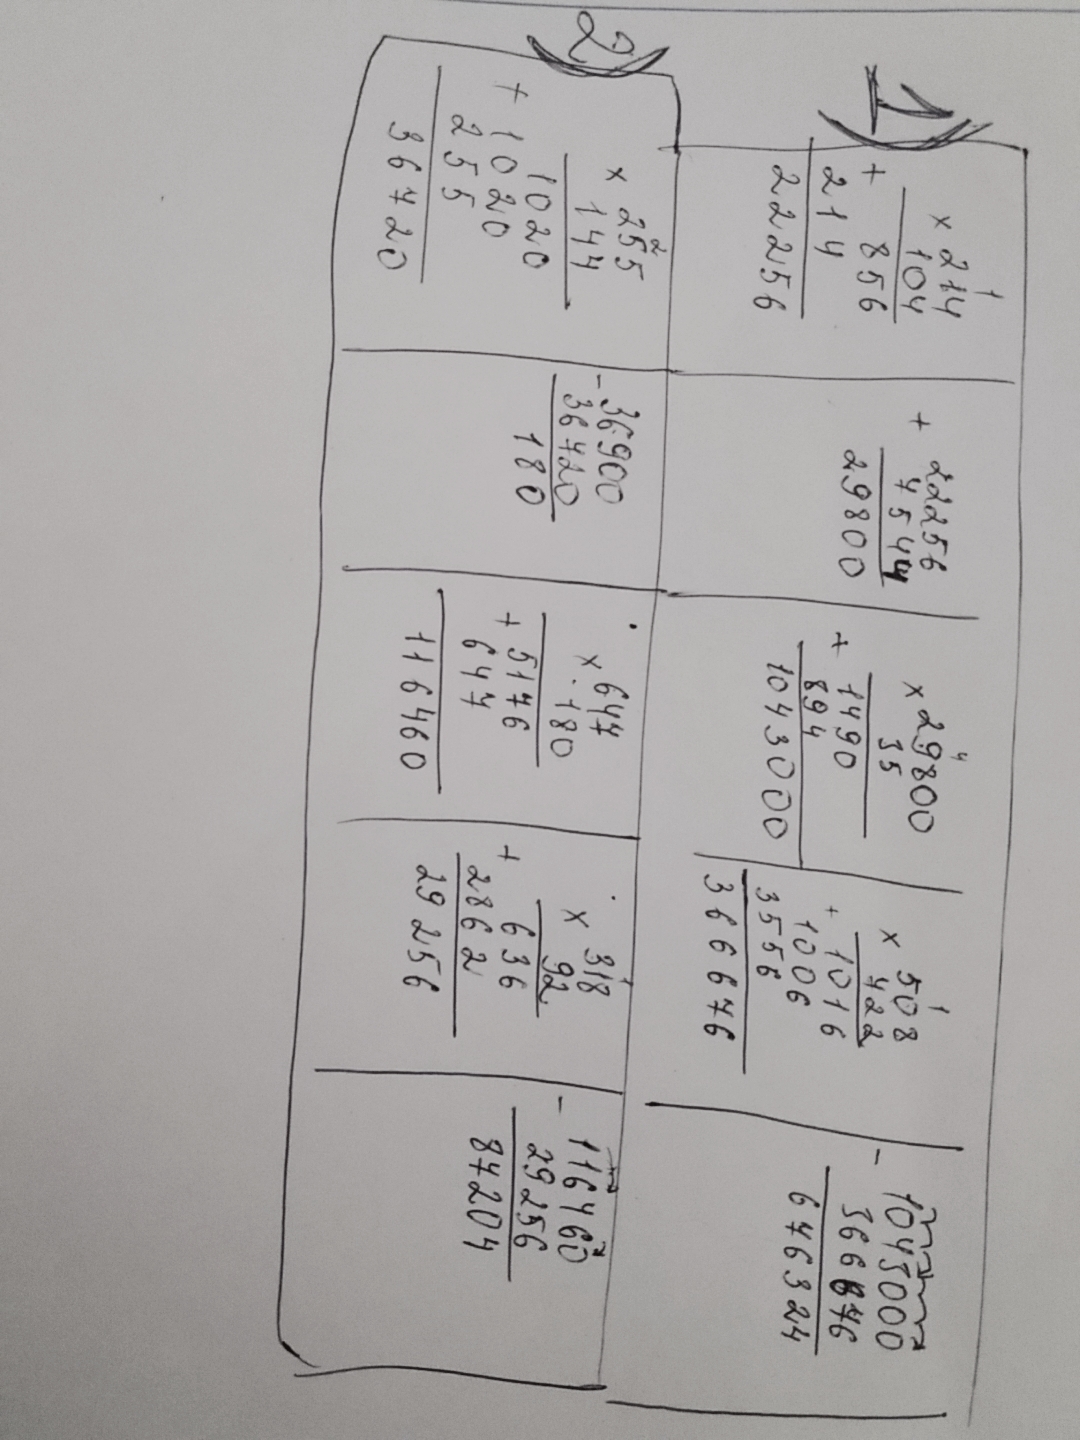 1)
1
× 214
104
+ 856
214
22256
+ 22256
7544
29800
4
× 29800
35
+ 1490
894
1043000
1
× 508
422
+ 1016
1006
3556
366676
- 1043000
366676
676324
2)
2
× 255
144
1020
+ 1020
255
36720
- 36900
36720
180
× 647
180
+ 5176
647
116460
1
× 318
92
+ 636
2862
29256
- 116460
29256
87204